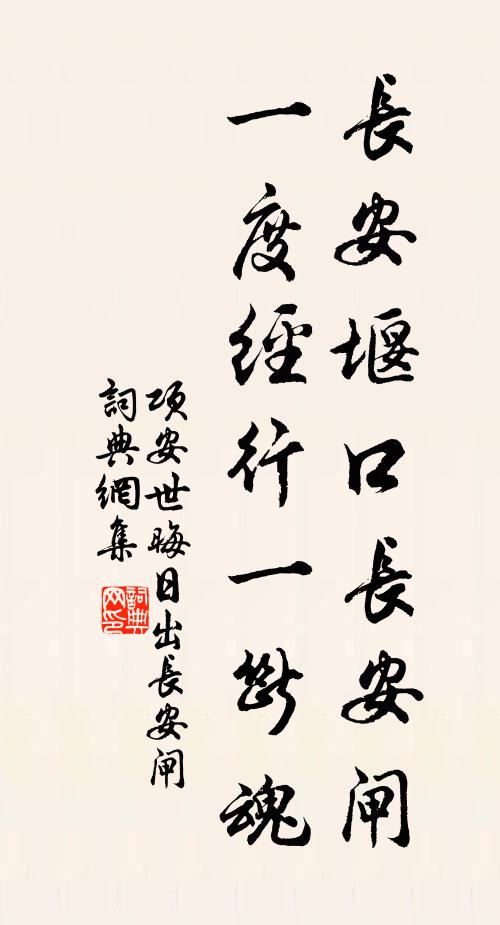 長安堰口長安閘
一度經行一斷魂
項安世晦日出長安閘
詞典網集
詞典
网印